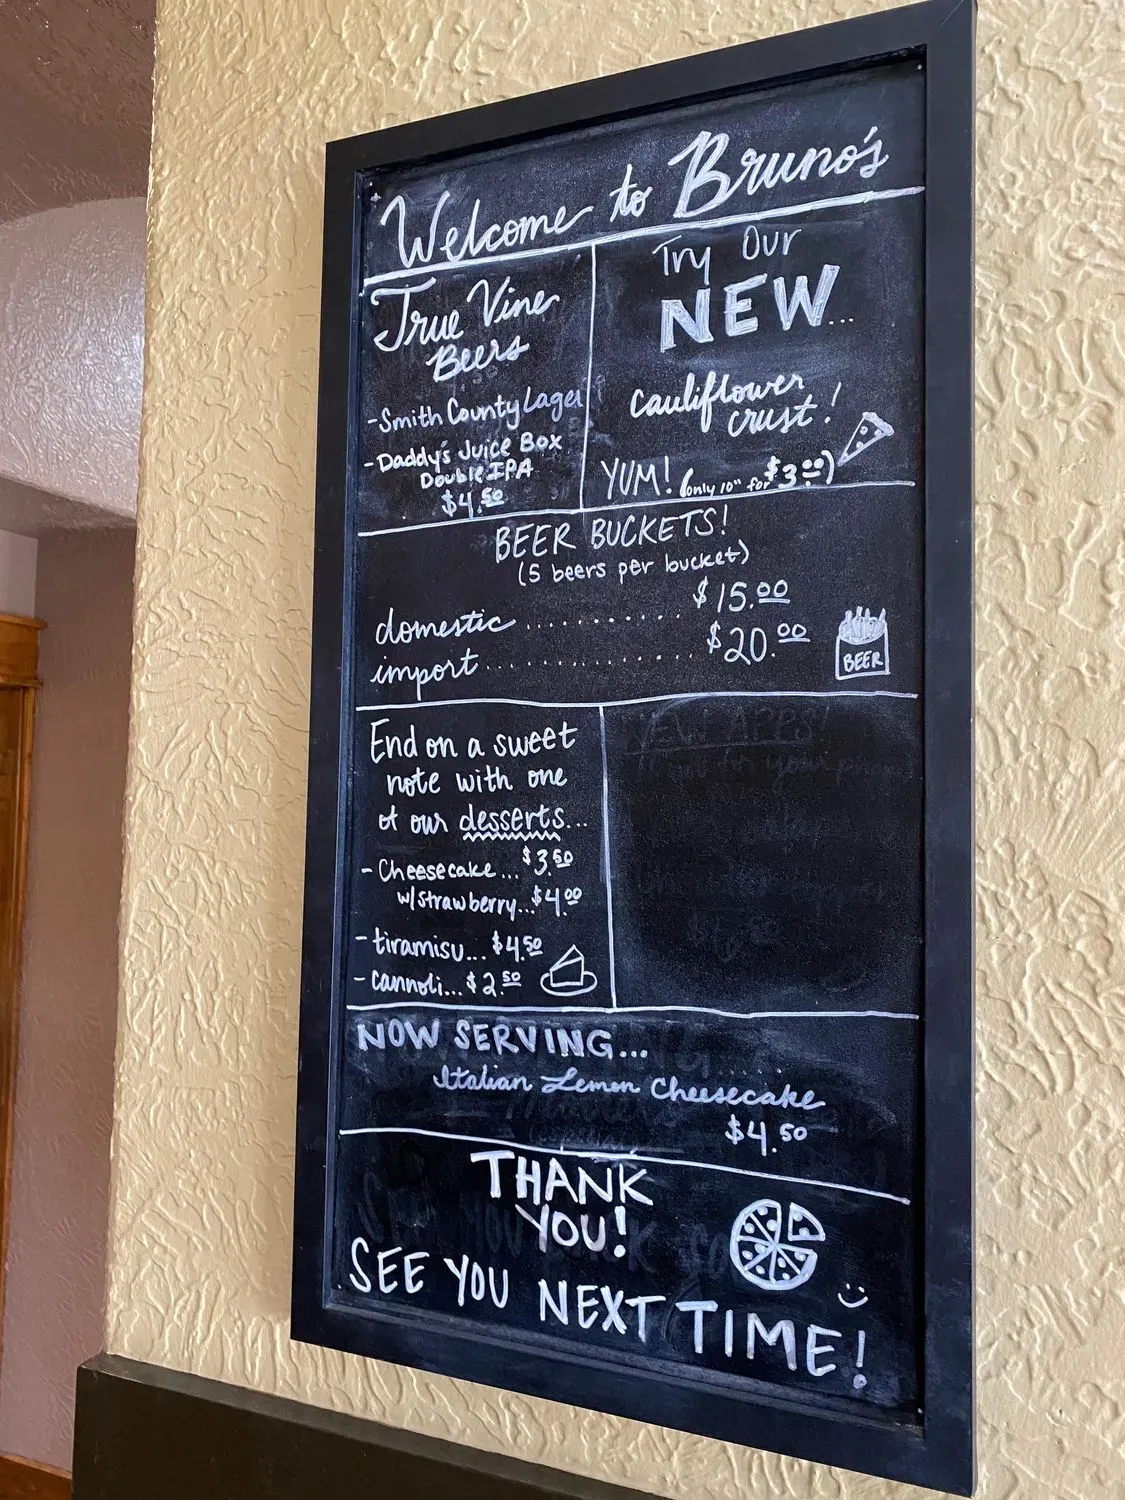 Welcome to Bruno's
True Vine
Beers
-Smith County Lager
-Daddy's Juice Box
Double IPA
$4.50
Try Our
NEW...
cauliflower
crust!
YUM! (only 10" for $3.00)
BEER BUCKETS!
(5 beers per bucket)
domestic .......... $15.00
import .............. $20.00
BEER
End on a sweet
note with one
of our desserts...
- Cheesecake... $3.50
w/strawberry...$4.00
- tiramisu... $4.50
- cannoli... $2.50
NEW APPS!
for your phone
NOW SERVING...
Italian Lemon Cheesecake
$4.50
THANK
YOU!
SEE YOU NEXT TIME!